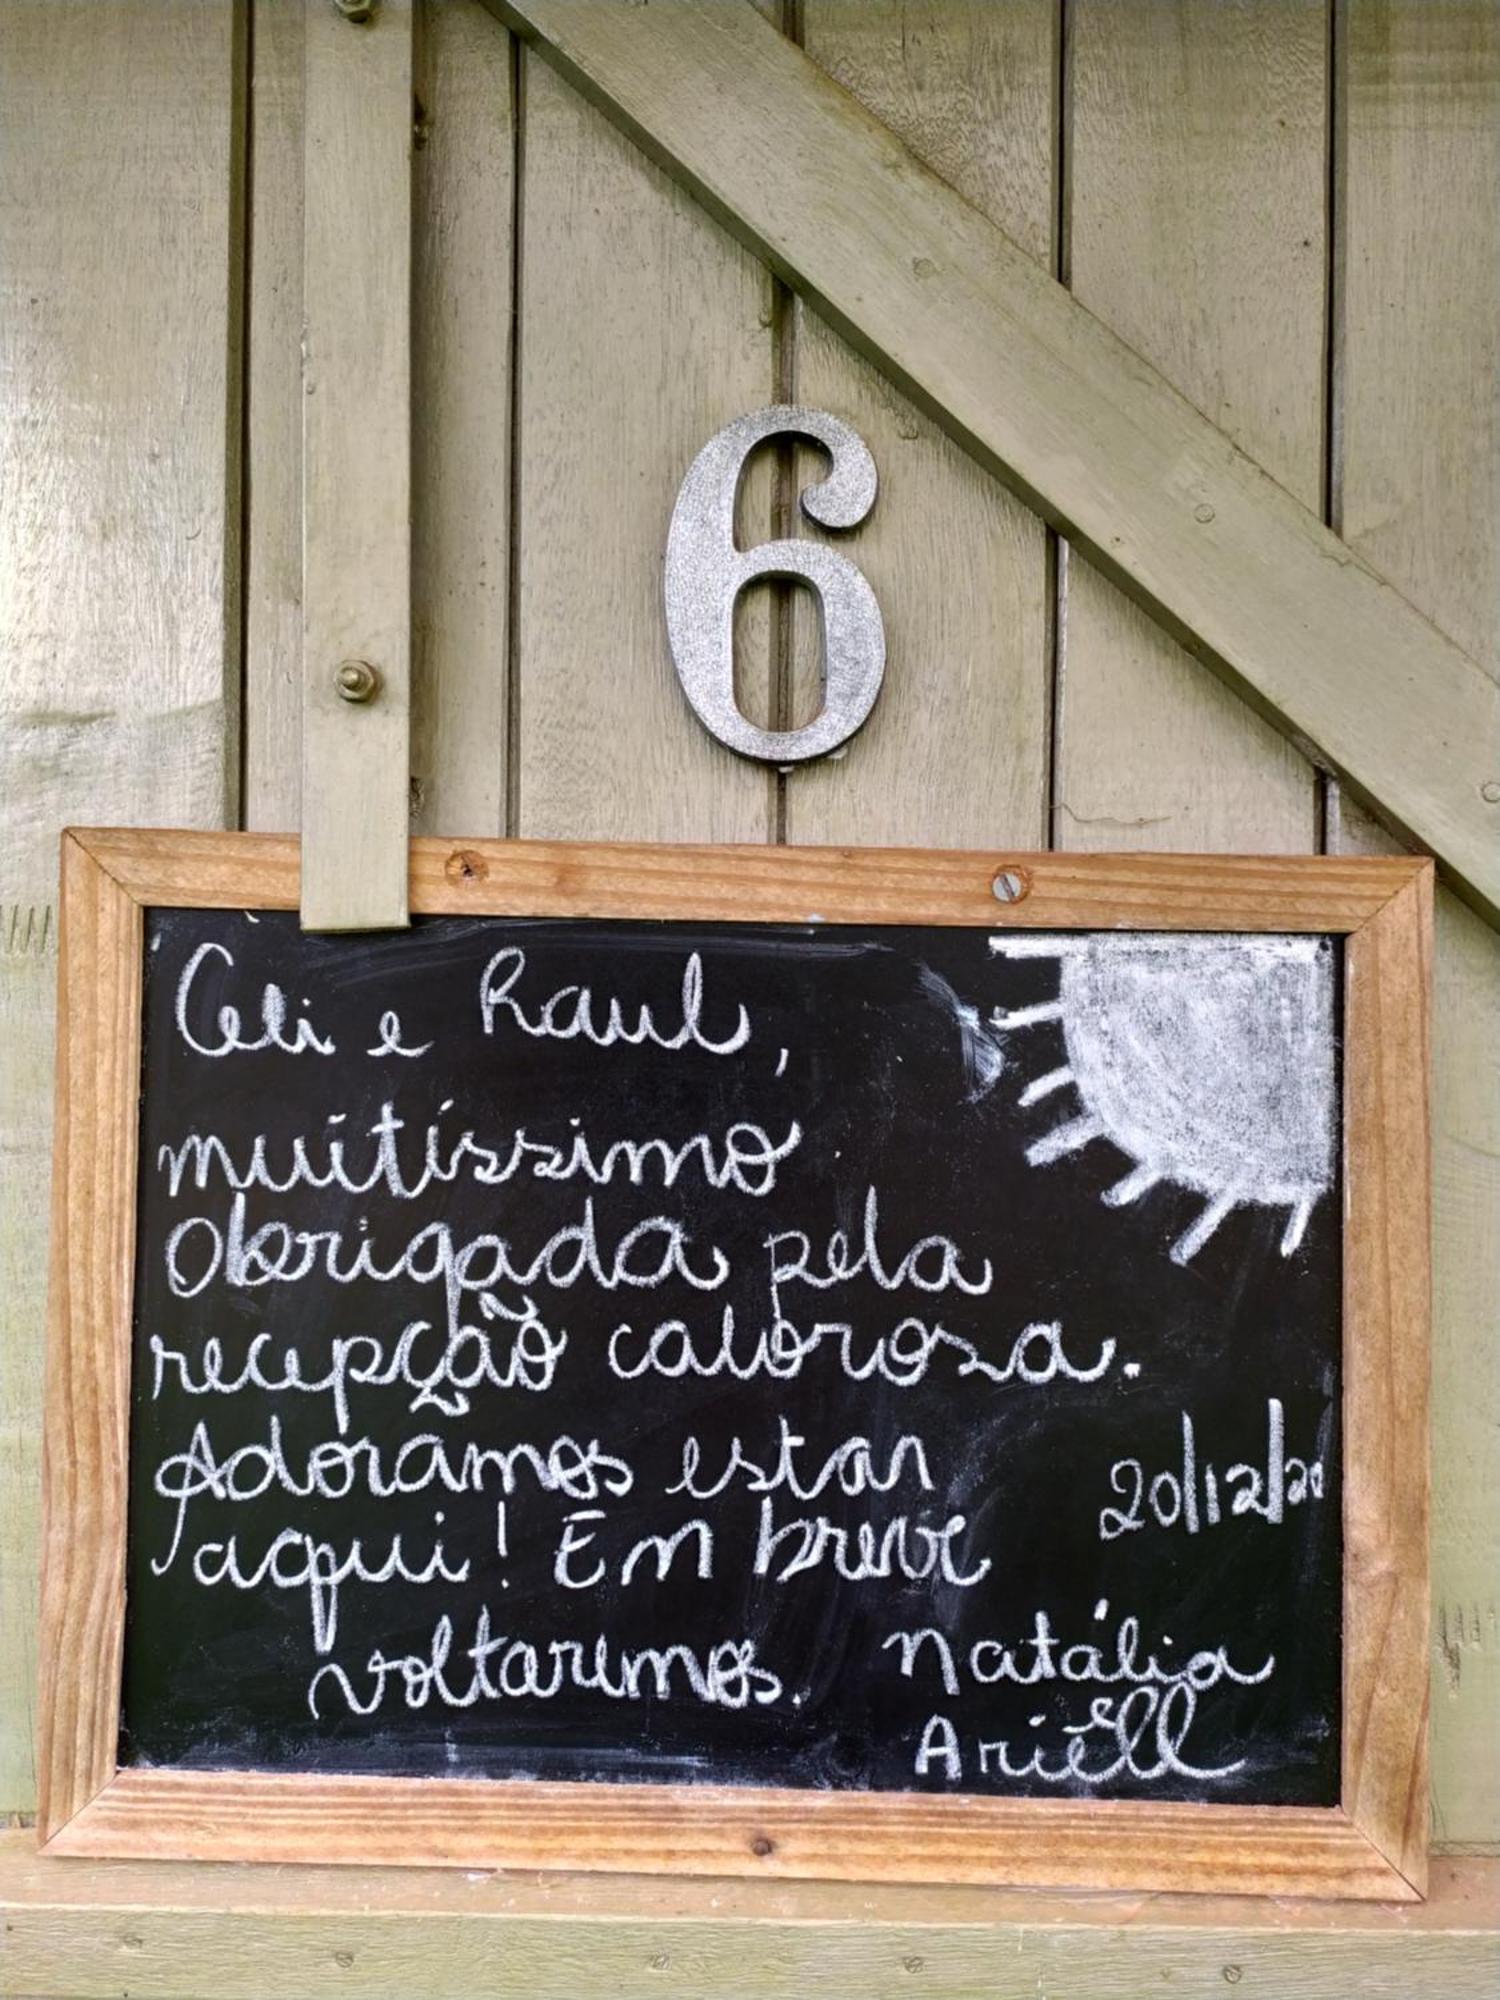 6
Celi e Raul,
muitíssimo
obrigada pela
recepção calorosa.
Adoramos estar
aqui! Em breve
voltaremos.
20/12/20
Natália
Ariéll